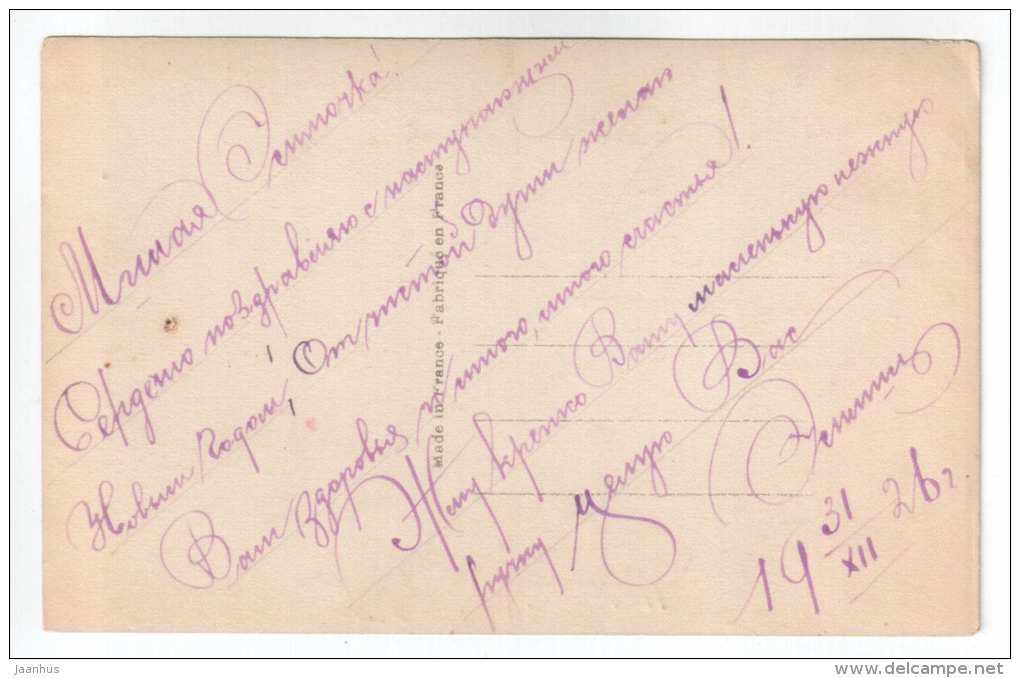 Милая Симочка!
Сердечно поздравляю с наступающим
Новым Годом! От всей души желаю
Вам Здоровья и много, много счастья!
Жму крепко Вашу маленькую нежную
ручку Целую Вас
19 31/XII 26 г.
Made in France - Fabriqué en France
jaanhus
www.delcampe.net